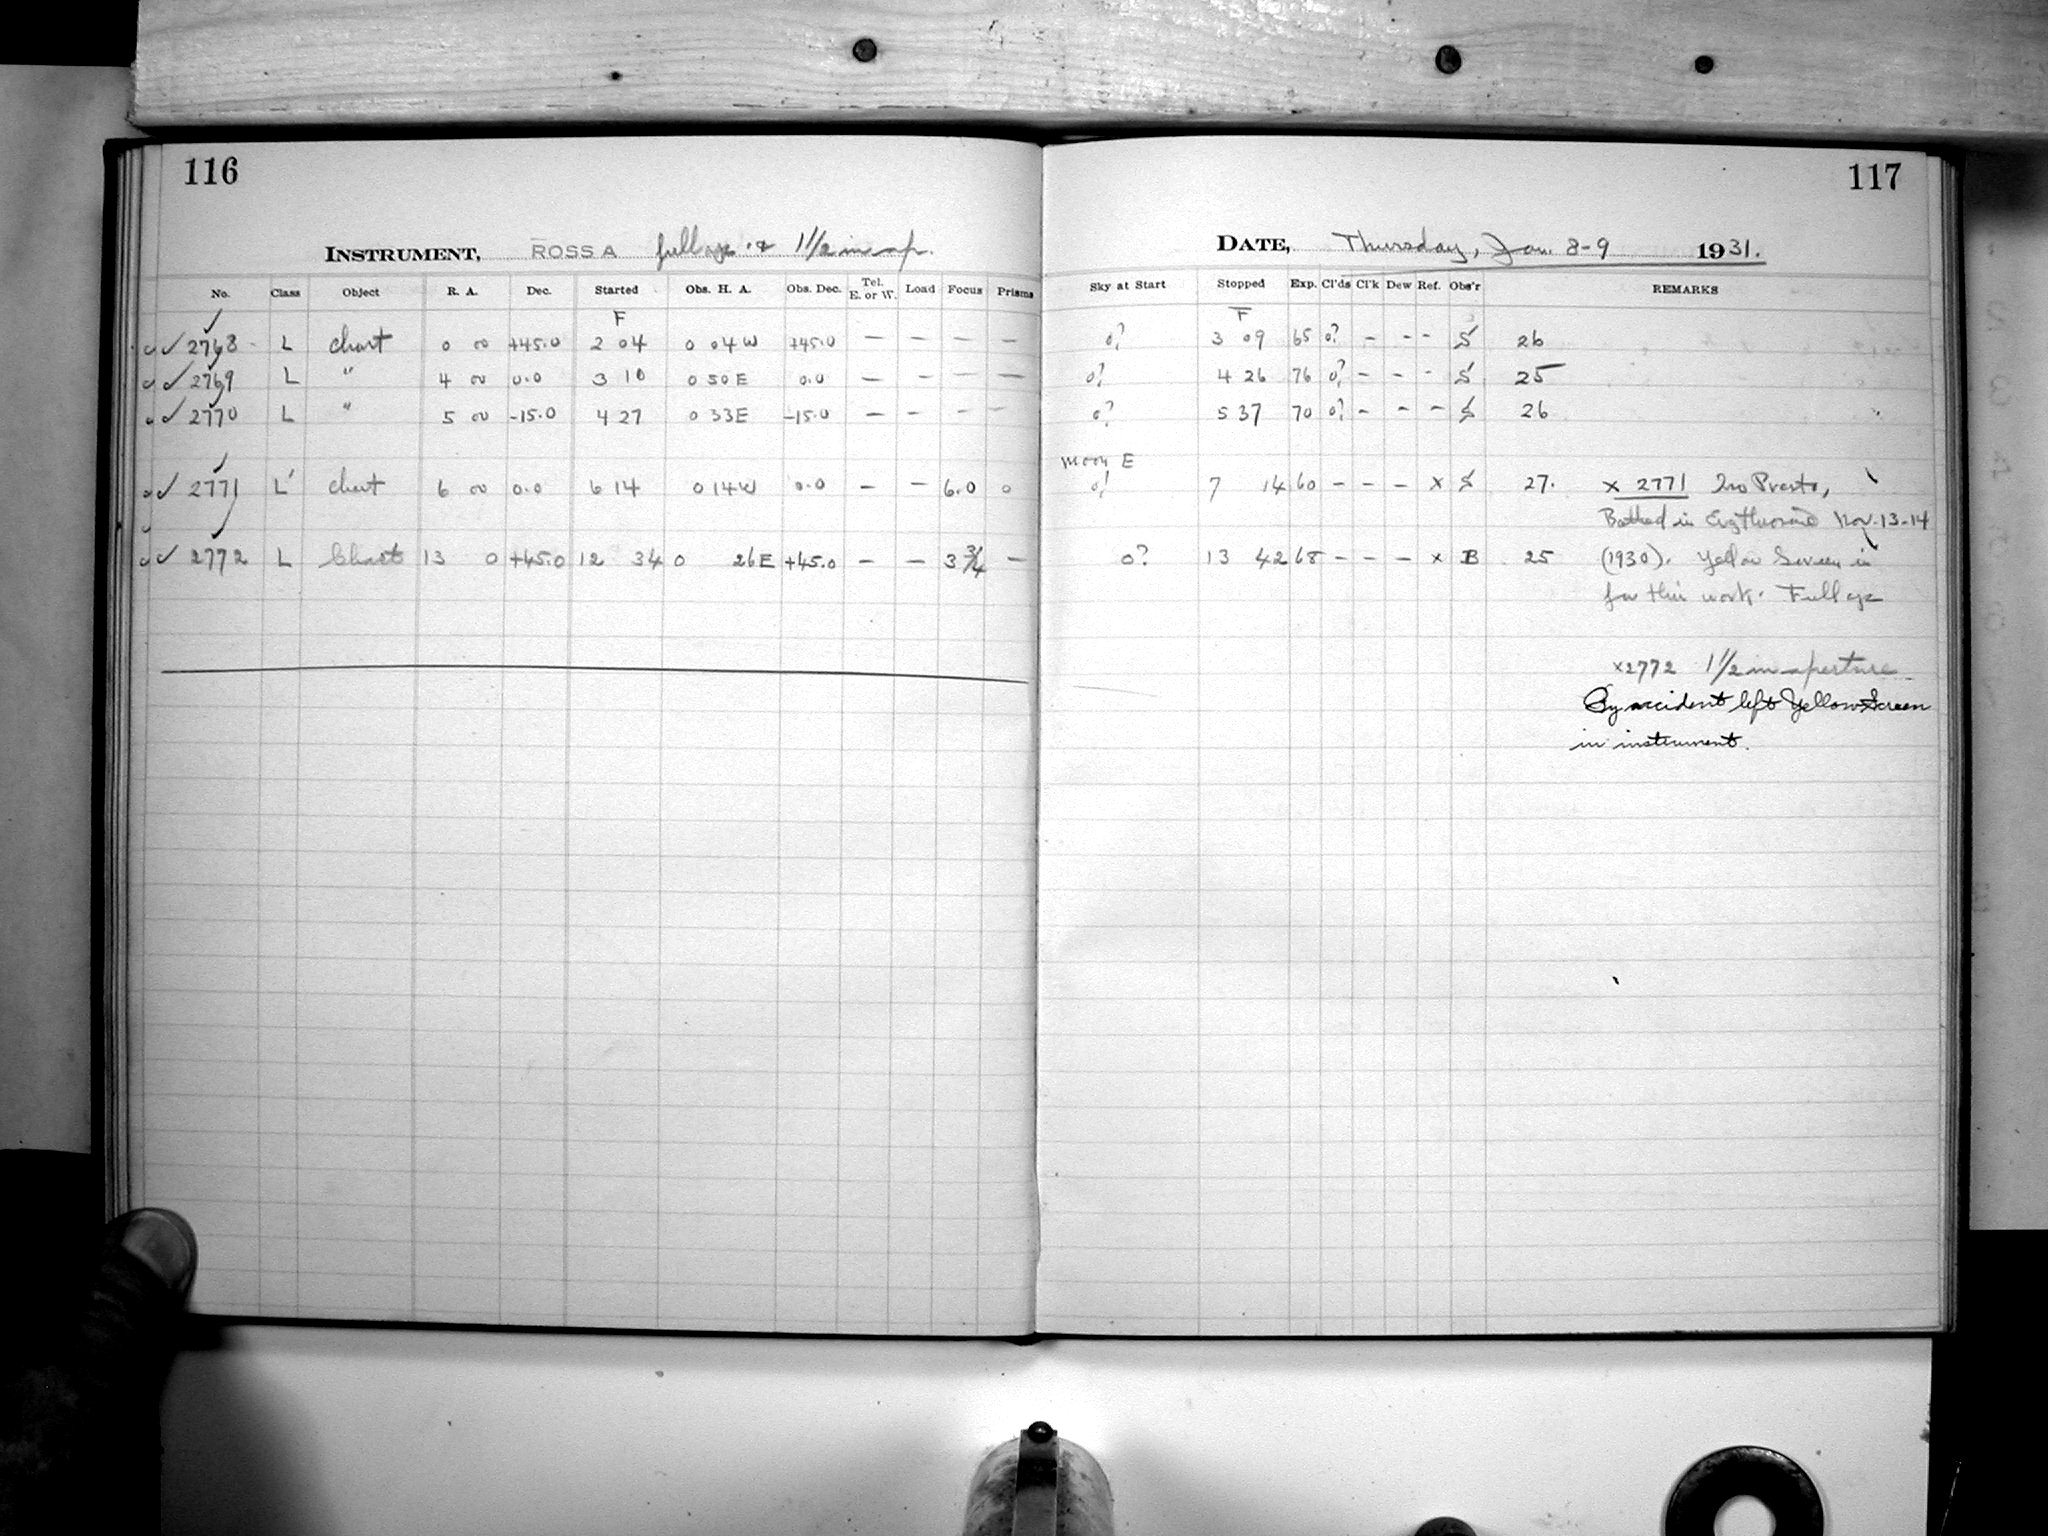 116
INSTRUMENT, ROSS A full ap. & 1 1/2 in ap.
No. Class Object R. A. Dec. Started Obs. H. A. Obs. Dec. Tel. E. or W. Load Focus Prisms
F
✓ 2768 L Chart 0 00 +45.0 2 04 0 04 W +45.0 — — — —
✓ 2769 L " 4 00 0.0 3 10 0 50 E 0.0 — — — —
✓ 2770 L " 5 00 -15.0 4 27 0 33 E -15.0 — — — —
✓ 2771 L' chart 6 00 0.0 6 14 0 14 W 0.0 — — 6.0 0
✓ 2772 L Chart 13 0 +45.0 12 34 0 26 E +45.0 — — 3 3/4 —
117
DATE, Thursday, Jan. 8-9 1931.
Sky at Start Stopped Exp. Cl'ds Cl'k Dew Ref. Obs'r REMARKS
F
0? 3 09 65 0? - - - S 26
0? 4 26 76 0? - - - S 25
0? 5 37 70 0? - - - S 26
Moon E
7 14 60 - - - x S 27. x 2771
Bathed in Nov. 13-14
0? 13 42 68 - - - x B 25 (1930). Yellow Screen in
for this work. Full ap
x2772 1 1/2 in aperture
By accident left Yellow Screen
in instrument.